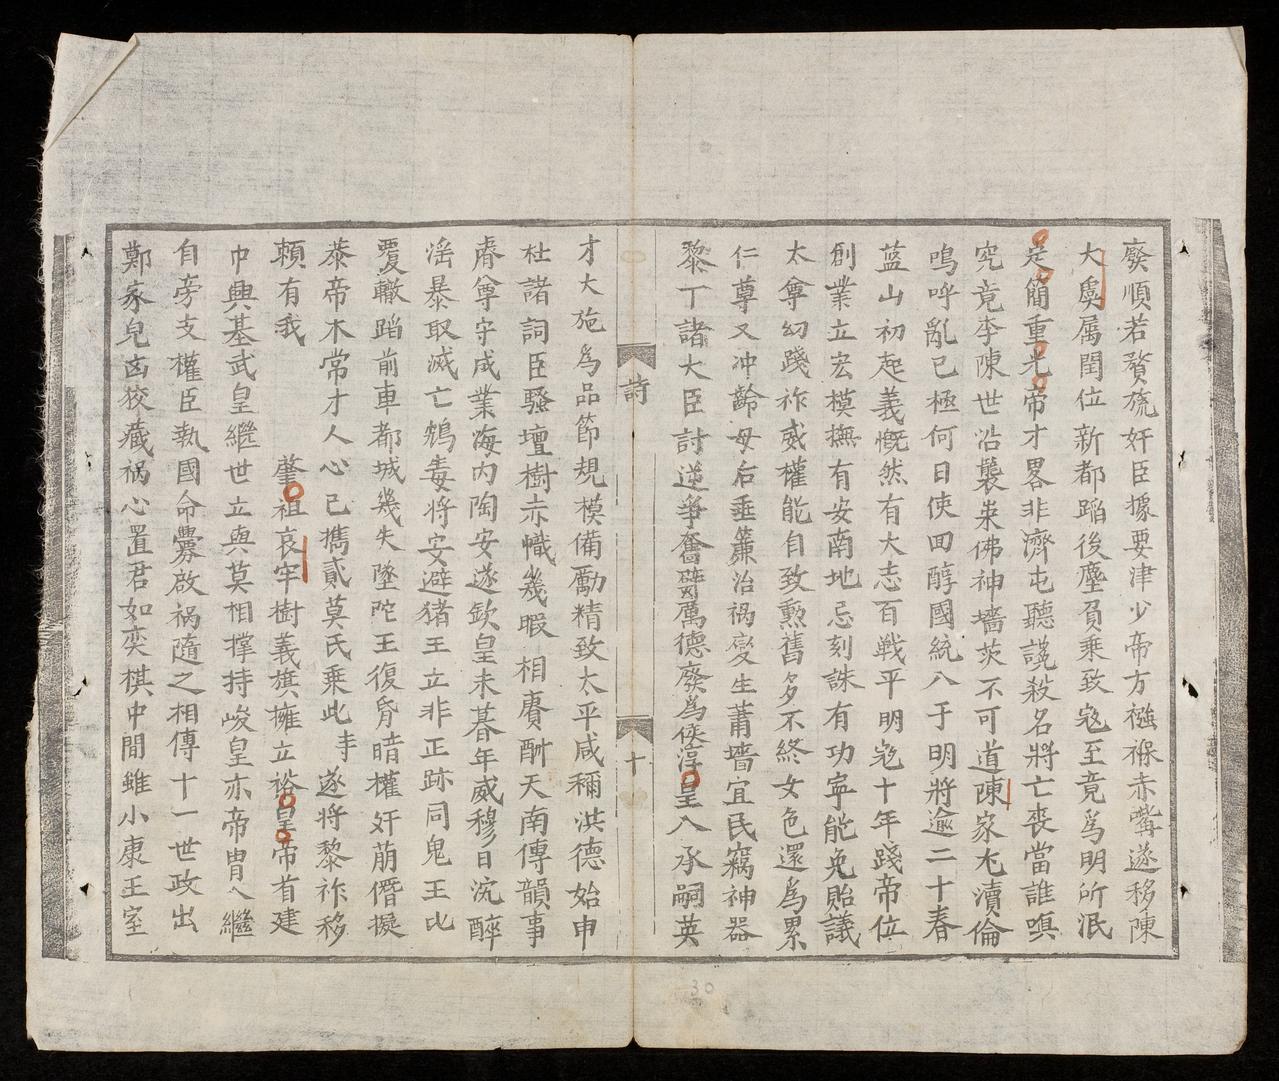 廢順若贅旒奸臣據要津少帝方襁褓赤嘴遂移陳
大虞属閏位新都蹈後塵負乗致宼至竟為明所泯
定簡重光帝才畧非濟屯聽讒殺名將亡丧當誰嗔
究竟李陳世沿襲崇佛神墻茨不可道陳家尤瀆倫
鳴呼亂已極何日使回醇國統入于明將逾二十春
蓝山初起義慨然有大志百戦平明宼十年踐帝位
創業立宏模撫有安南地忌刻誅有功寧能免貽議
太尊幼踐祚威權能自致勲舊多不終女色還為累
仁尊又冲齡母后垂簾治禍变生蕭墻宜民竊神器
黎丁諸大臣討逆争奮臂萬德廢為侯淳皇入承嗣英
詩 十
才大施為品節規模備勵精致太平咸稱洪德始申
杜諸詞臣騷壇樹赤幟幾暇相賡酬天南傳韻事
睿尊守成業海内陶安遂欽皇未暮年威穆日沉醉
滛暴取滅亡鴆毒将安避猪王立非正跡同鬼王比
覆轍蹈前車都城幾失墜陀王復昏暗權奸萠僭擬
恭帝木常才人心已攜貳莫氏乗此時遂将黎祚移
頼有我 肇祖哀牢樹義旗擁立裕皇帝首建
巾興基武皇繼世立與莫相撑持峻皇亦帝胄入繼
自旁支權臣執國命釁啟禍隨之相傳十一世政出
鄭家兒凶狡藏禍心置君如奕棋中間雖小康王室
30